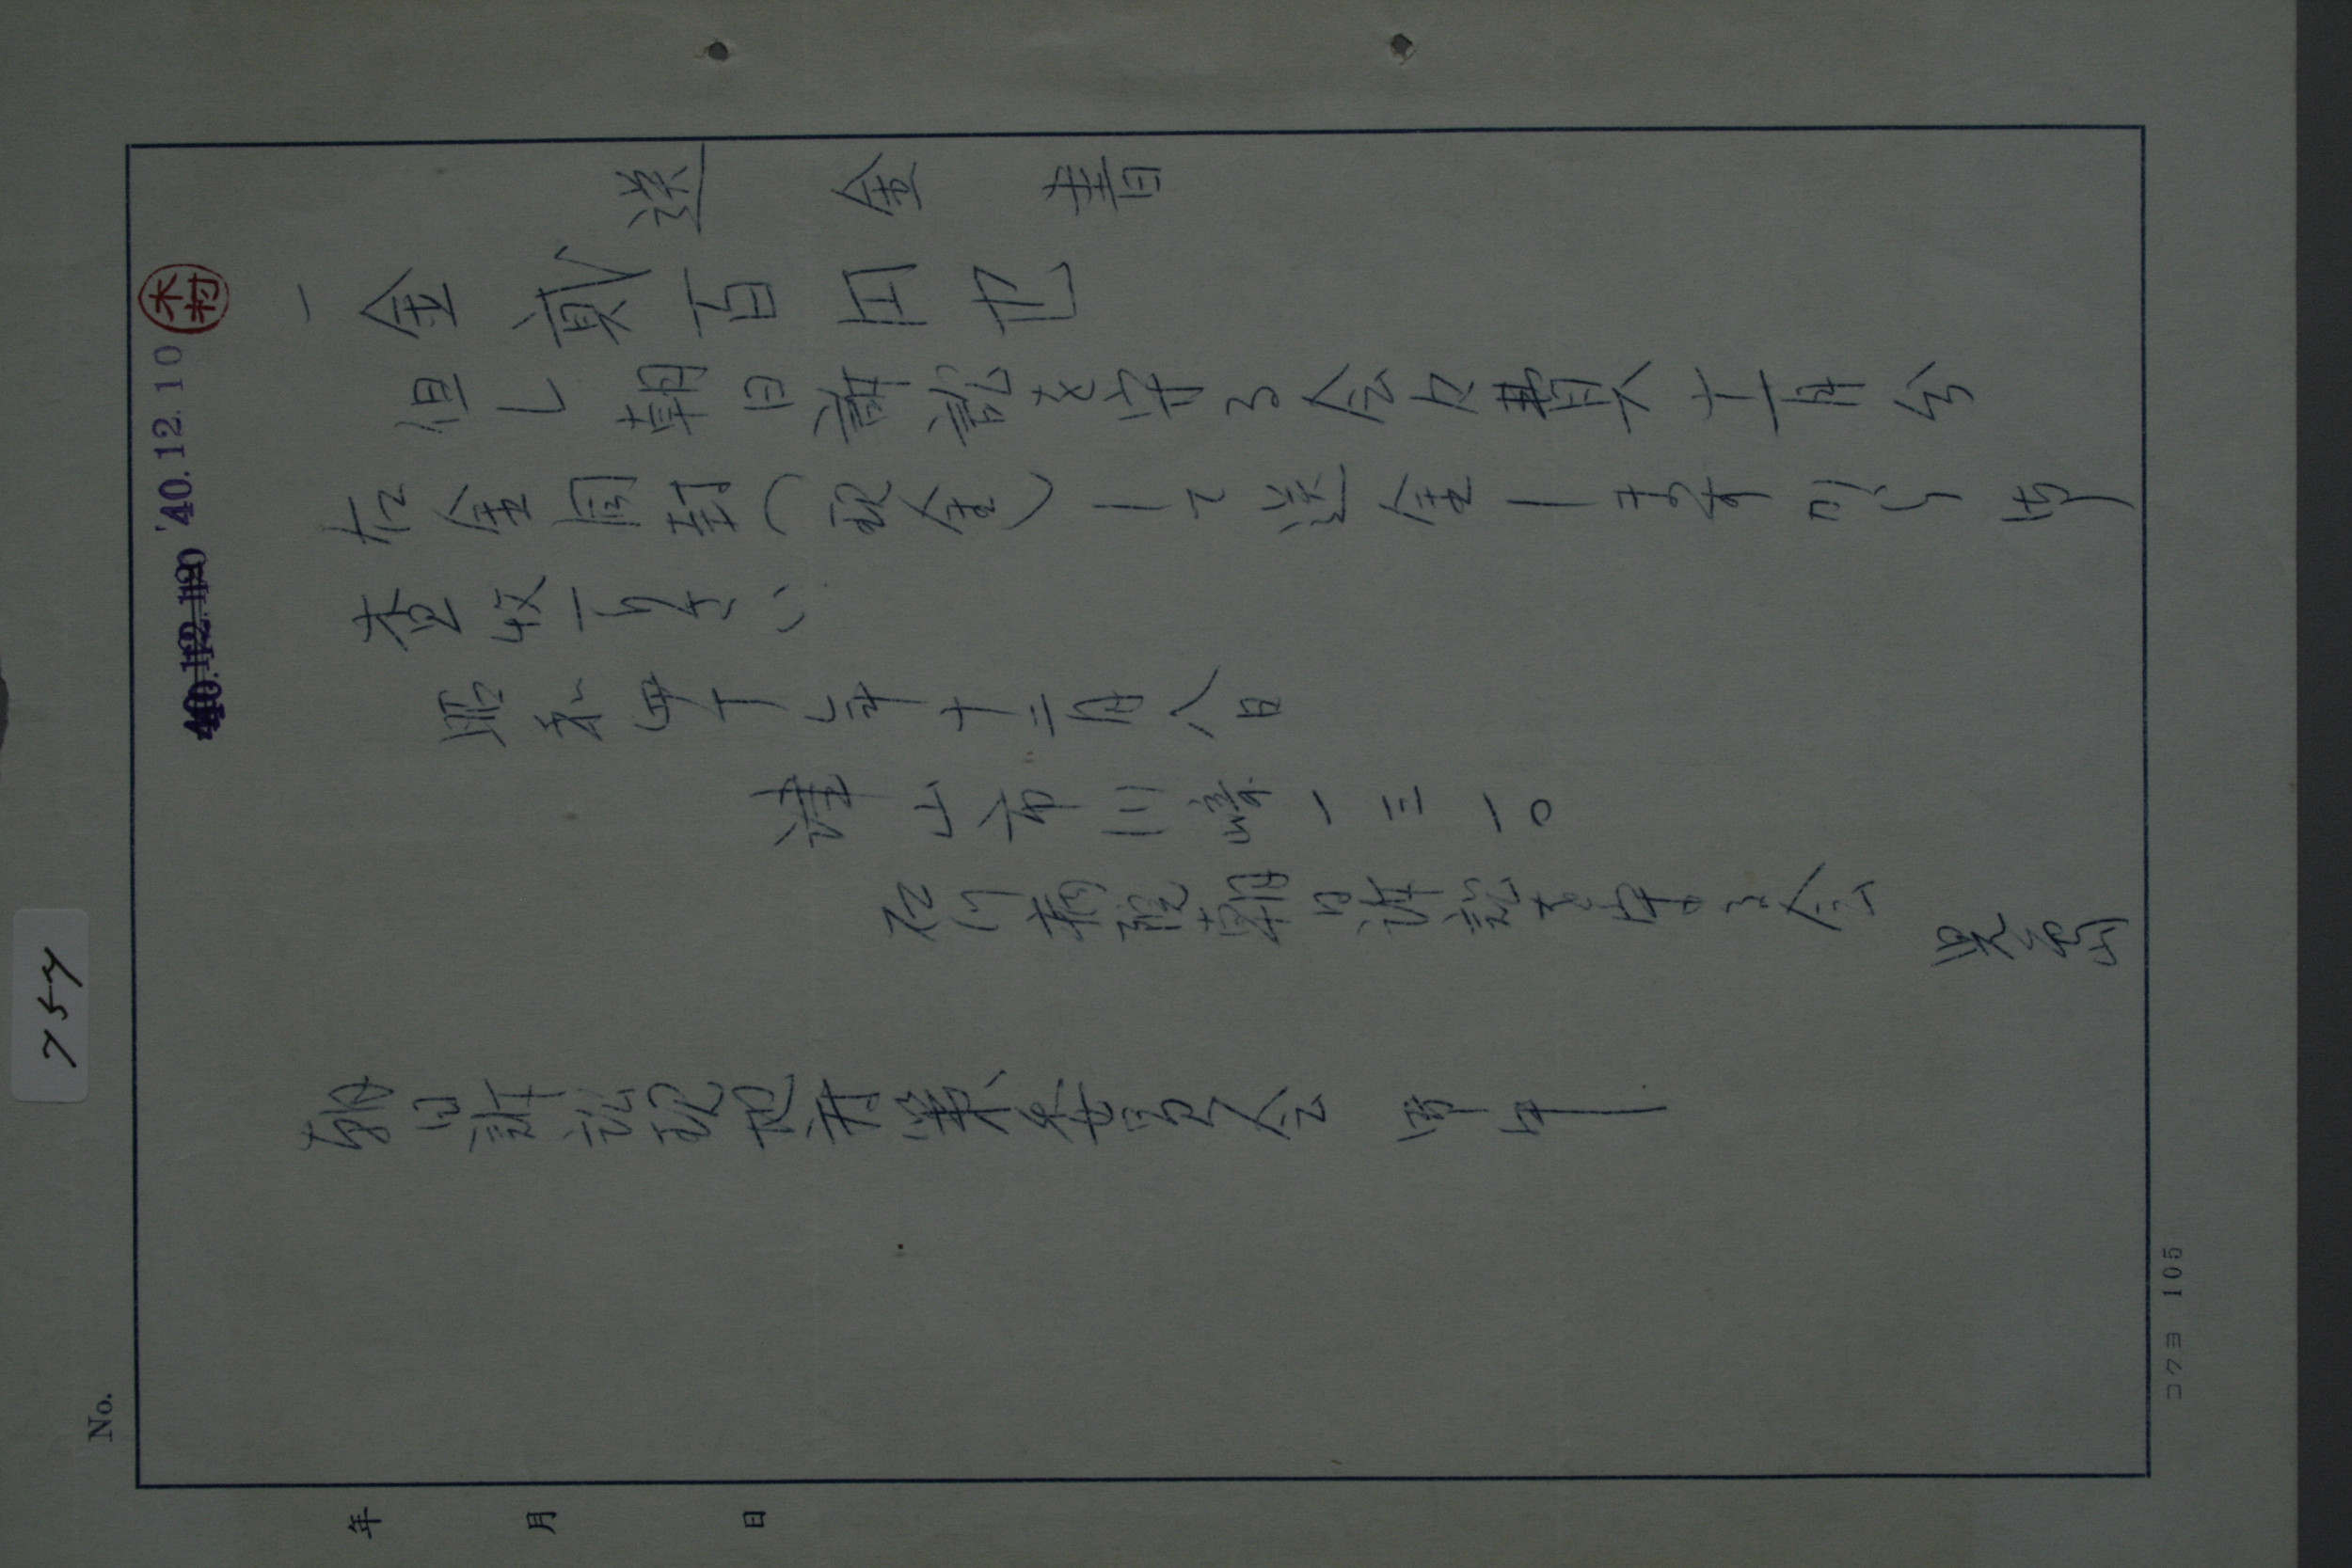 送金書
一金貳百円也
但し朝日訴訟を守る会々費十一月分
右金同封(現金)して送金しますから御
査収下さい
昭和四十年十二月八日
津山市川崎一三一〇
石川病院朝日訴訟を守る会
朝日訴訟現地対策委員会 御中
'40.12.10
木村
757
No.
年 月 日
コクヨ 105